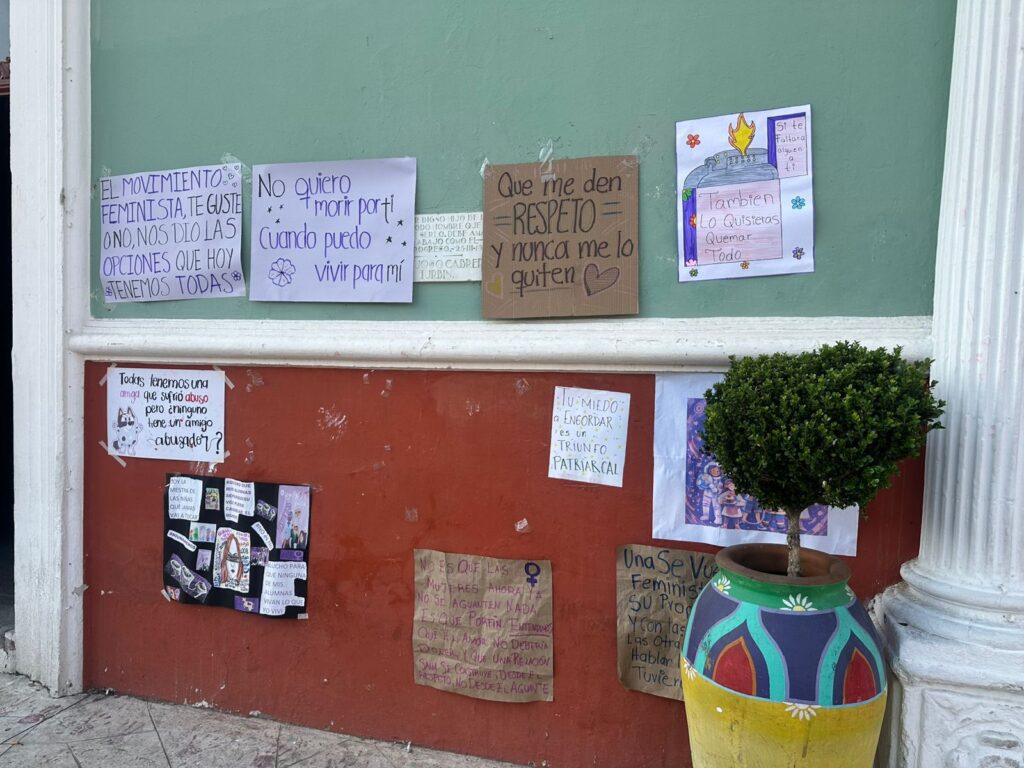 EL MOVIMIENTO
FEMINISTA, TE GUSTE
O NO, NOS DIO LAS
OPCIONES QUE HOY
TENEMOS TODAS
No quiero
morir por ti
Cuando puedo
vivir para mí
Que me den
RESPETO
y nunca me lo
quiten
Si te
Faltara
alguien
a ti
Tambien
Lo Quisieras
Quemar
Todo
Todas tenemos una
amiga que sufrió abuso
pero ¿ninguno
tiene un amigo
abusador?
TU MIEDO
a ENGORDAR
es un
TRIUNFO
PATRIARCAL
SOY LA
MAESTRA DE
LAS NIÑAS
QUE JAMAS
VAS A TOCAR
LUCHO PARA
QUE NINGUNA
DE MIS
ALUMNAS
VIVAN LO QUE
YO VIVÍ
NO ES QUE LAS
MUJERES AHORA YA
NO SE AGUANTEN NADA
ES QUE PORFIN ENTENDIMOS
QUE EL AMOR NO DEBERIA
DOLER Y QUE UNA RELACIÓN
SANA SE CONSTRUYE DESDE EL
RESPETO, NO DESDE EL AGUANTE
Una Se
Feminis
SU
Y con
Las Otra
Hablar
Tuvier